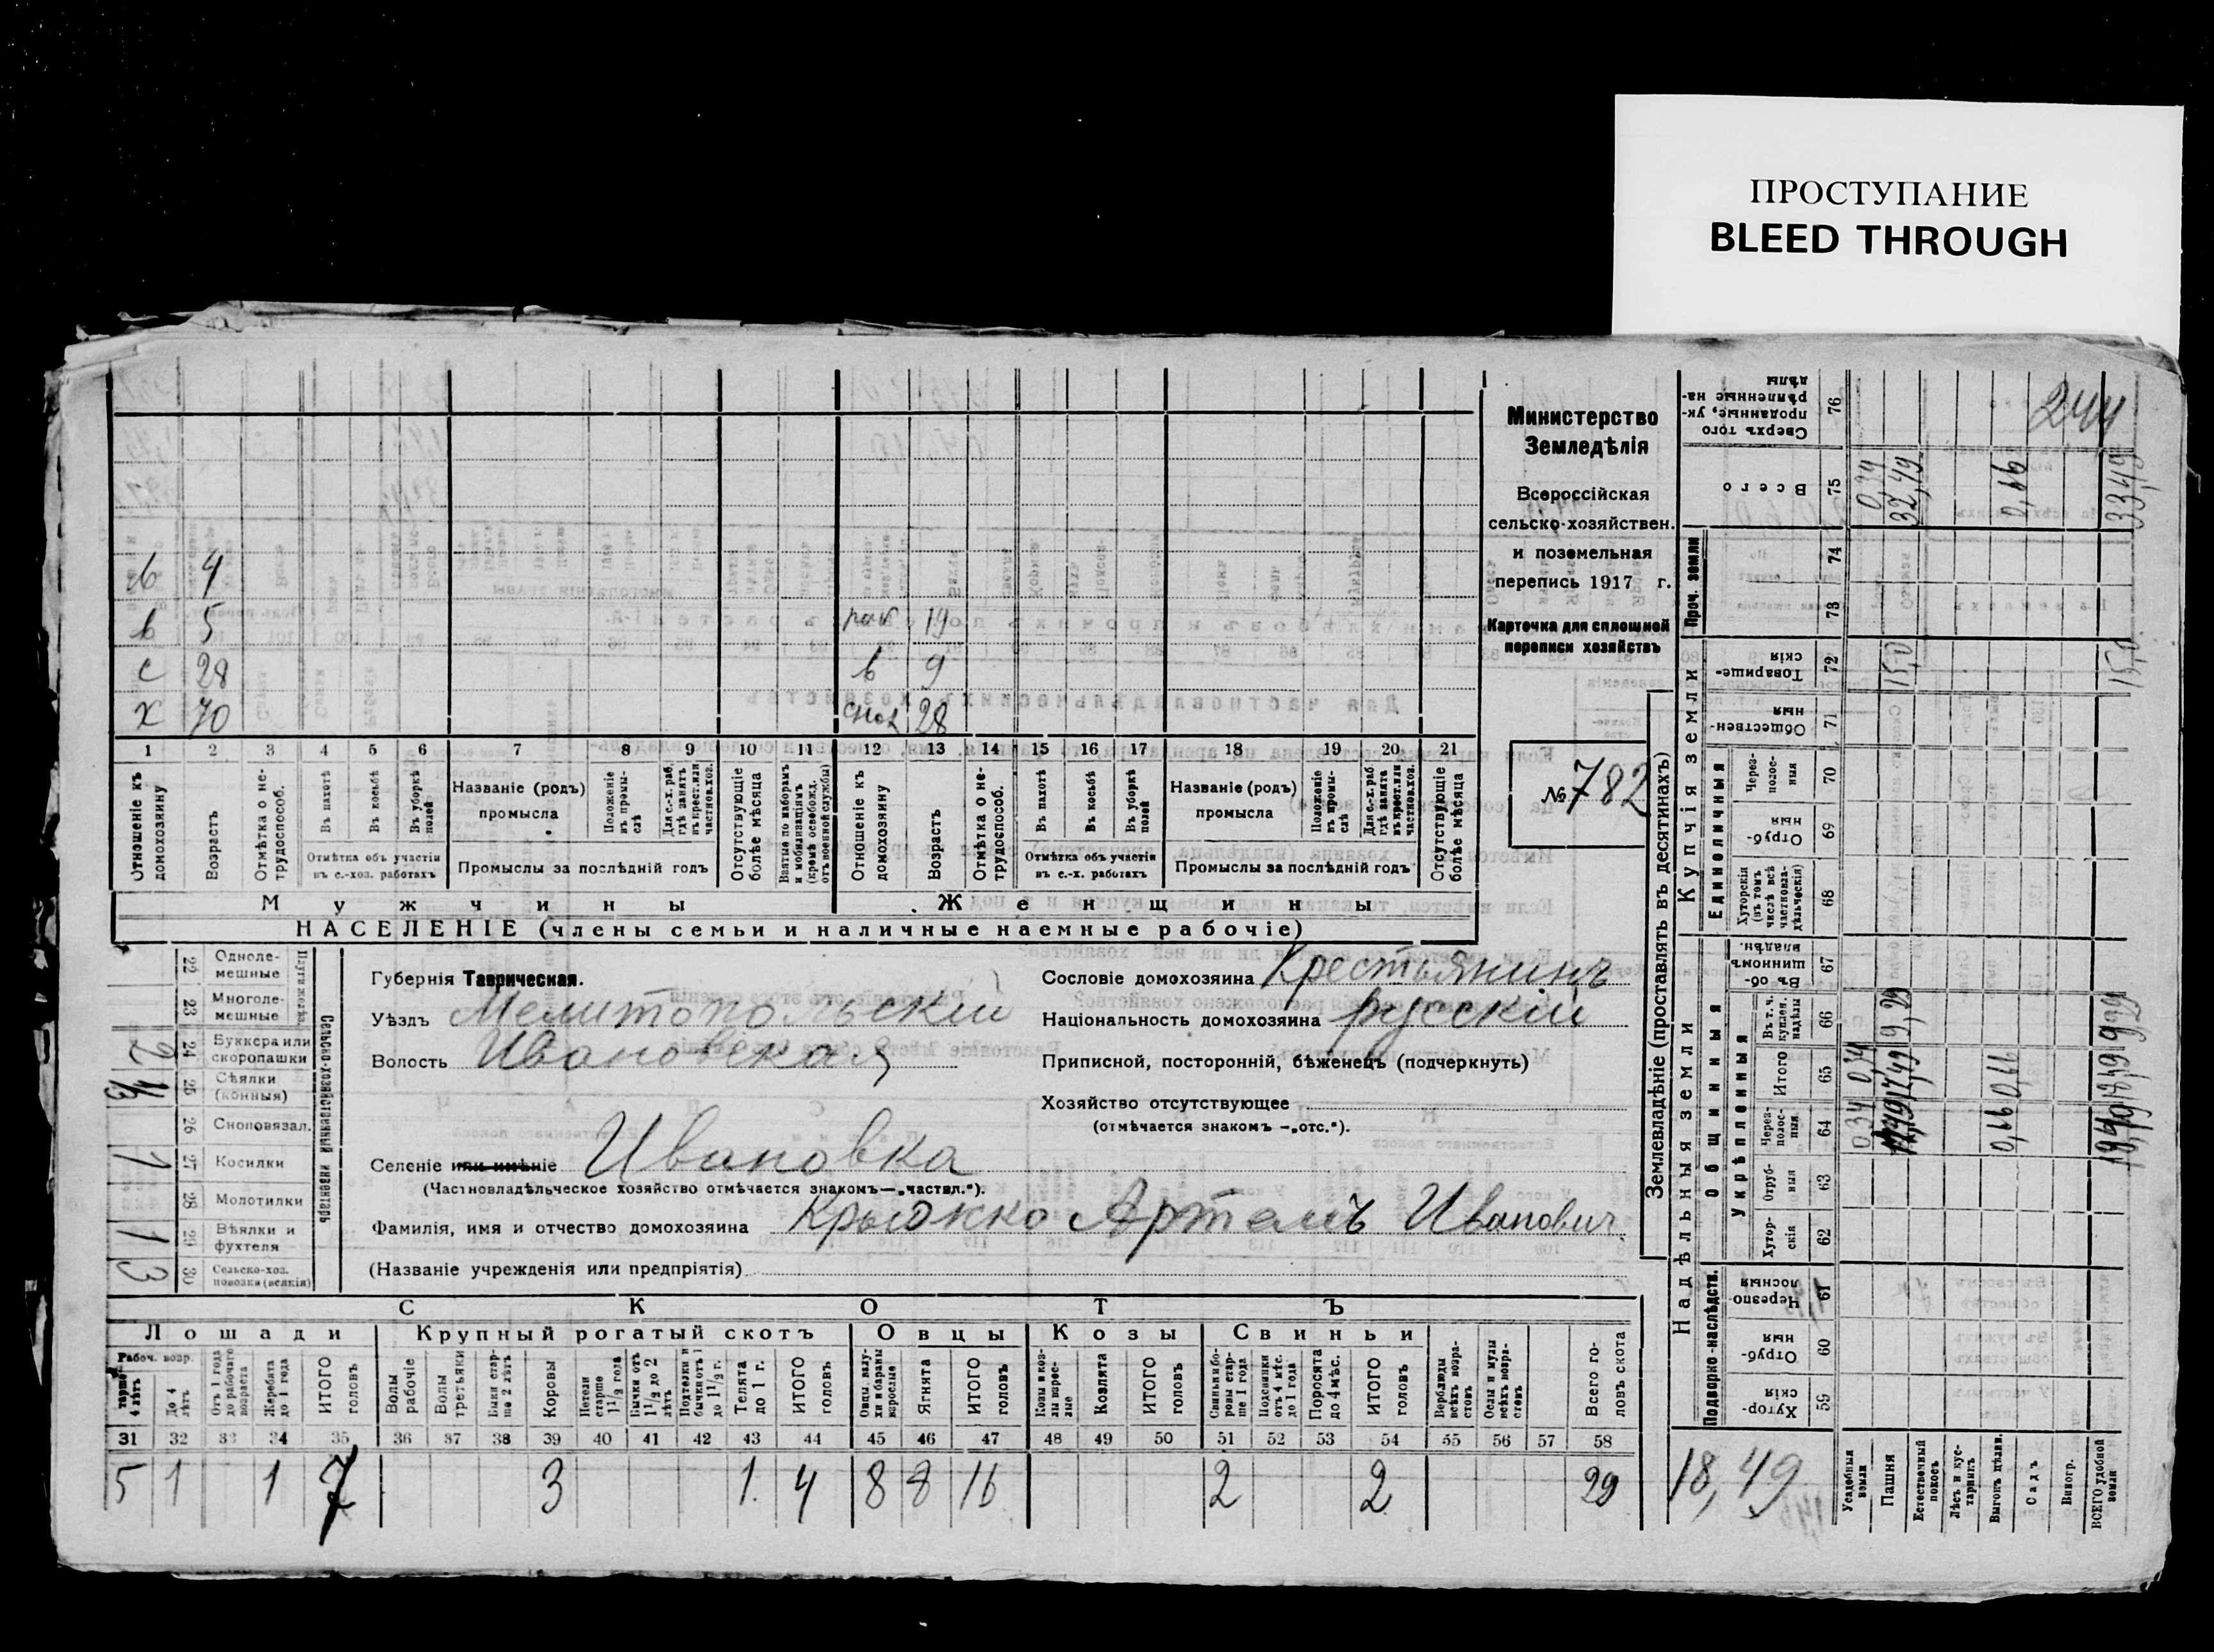 ПРОСТУПАНИЕ
BLEED THROUGH
Министерство
Земледѣлія
Всероссійская
сельско-хозяйствен.
и поземельная
перепись 1917 г.
Карточка для сплошной
переписи хозяйствъ
№ 782
в 4
в 5 раб 19
с 28 в 9
х 70 снох 28
1 2 3 4 5 6 7 8 9 10 11 12 13 14 15 16 17 18 19 20 21
Отношеніе къ домохозяину
Возрастъ
Отмѣтка о нетрудоспособ.
Въ пахотѣ
Въ косьбѣ
Въ уборкѣ полей
Отмѣтка объ участіи въ с.-хоз. работахъ
Названіе (родъ) промысла
Положеніе въ промыслѣ
Для с.-х. раб. гдѣ занятъ въ крест. или частновл. хоз.
Промыслы за послѣдній годъ
Отсутствующіе болѣе мѣсяца
Взятые по наборамъ и мобилизаціямъ (кромѣ освобожд. отъ военной службы)
Отношеніе къ домохозяину
Возрастъ
Отмѣтка о нетрудоспособ.
Въ пахотѣ
Въ косьбѣ
Въ уборкѣ полей
Отмѣтка объ участіи въ с.-х. работахъ
Названіе (родъ) промысла
Положеніе въ промыслѣ
Для с.-х. раб. гдѣ занята въ крест. или частновл. хоз.
Промыслы за послѣдній годъ
Отсутствующіе болѣе мѣсяца
Мужчины Женщины
НАСЕЛЕНІЕ (члены семьи и наличные наемные рабочіе)
Сельско-хозяйственный инвентарь
22 Однолемешные
23 Многолемешные
24 Буккера или скоропашки 2
25 Сѣялки (конныя) 1/3
26 Сноповязал.
27 Косилки 1
28 Молотилки
29 Вѣялки и фухтеля 1
30 Сельско-хоз. повозки (всякія) 3
Губернія Таврическая.
Уѣздъ Мелитопольскій
Волость Ивановская
Селеніе или имѣніе Ивановка
(Частновладѣльческое хозяйство отмѣчается знакомъ—„частвл.“).
Фамилія, имя и отчество домохозяина Артемъ Иванович
(Названіе учрежденія или предпріятія)
Сословіе домохозяина Крестьянинъ
Національность домохозяина русскій
Приписной, посторонній, бѣженецъ (подчеркнуть)
Хозяйство отсутствующее
(отмѣчается знакомъ —„отс.“).
СКОТЪ
Лошади Крупный рогатый скотъ Овцы Козы Свиньи
Рабоч. возр.
старше 4 лѣтъ
До 4 лѣтъ
Отъ 1 года до рабочаго возраста
Жеребята до 1 года
ИТОГО головъ
Волы рабочіе
Волы третьяки
Быки старше 2 лѣтъ
Коровы
Нетели старше 1 1/2 года
Бычки отъ 1 1/2 до 2 лѣтъ
Подтелки и бычки отъ 1 до 1 1/2 г.
Телята до 1 г.
ИТОГО головъ
Овцы, валухи и бараны взрослые
Ягнята
ИТОГО головъ
Козы и козлы взрослые
Козлята
ИТОГО головъ
Свиньи и боровы старше 1 года
Подсвинки отъ 4 мѣс. до 1 года
Поросята до 4 мѣс.
ИТОГО головъ
Верблюды всѣхъ возрастовъ
Ослы и мулы всѣхъ возрастовъ
Всего головъ скота
31 32 33 34 35 36 37 38 39 40 41 42 43 44 45 46 47 48 49 50 51 52 53 54 55 56 57 58
5 1 1 7 3 1. 4 8 8 16 2 2 29
Землевладѣніе (проставлять въ десятинахъ)
Надѣльныя земли Купчія земли Проч. земли
Подворно-наслѣдств. Общинныя Единоличныя
Укрѣпленныя
Хуторскія 59
Отрубныя 60
Черезполосныя 61
Хуторскія 62
Отрубныя 63
Черезполосныя 64
Итого 65
В т. ч. куплен. надѣлы 66
Въ общинномъ владѣн. 67
Хуторскія (въ томъ числѣ всѣ частновладѣльческія) 68
Отрубныя 69
Черезполосныя 70
Общественныя 71
Товарищескія 72
73
74
Всего 75
Сверхъ того проданные, укрѣпленные надѣлы 76
Усадебныя земли 0,34 0,34 0,34
Пашня 17,49 9,29 15,0 32,49
Естественный покосъ
Лѣсъ и кустарникъ
Выгонъ цѣлин. 0,66 0,66 0,66
Садъ
Виногр.
ВСЕГО удобной земли 18,49 9,29 15,0 33,49
244
18,49